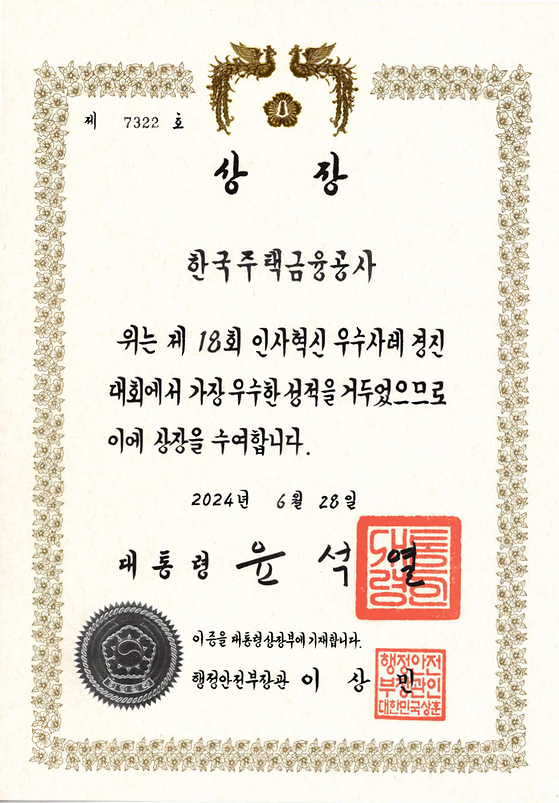 제 7322 호
상 장
한국주택금융공사
위는 제 18회 인사혁신 우수사례 경진
대회에서 가장 우수한 성적을 거두었으므로
이에 상장을 수여합니다.
2024년 6월 28일
대통령 윤 석 열
대통령의인
이 증을 대통령상장부에 기재합니다.
행정안전부장관 이 상 민
행정안전
부장관인
대한민국상훈